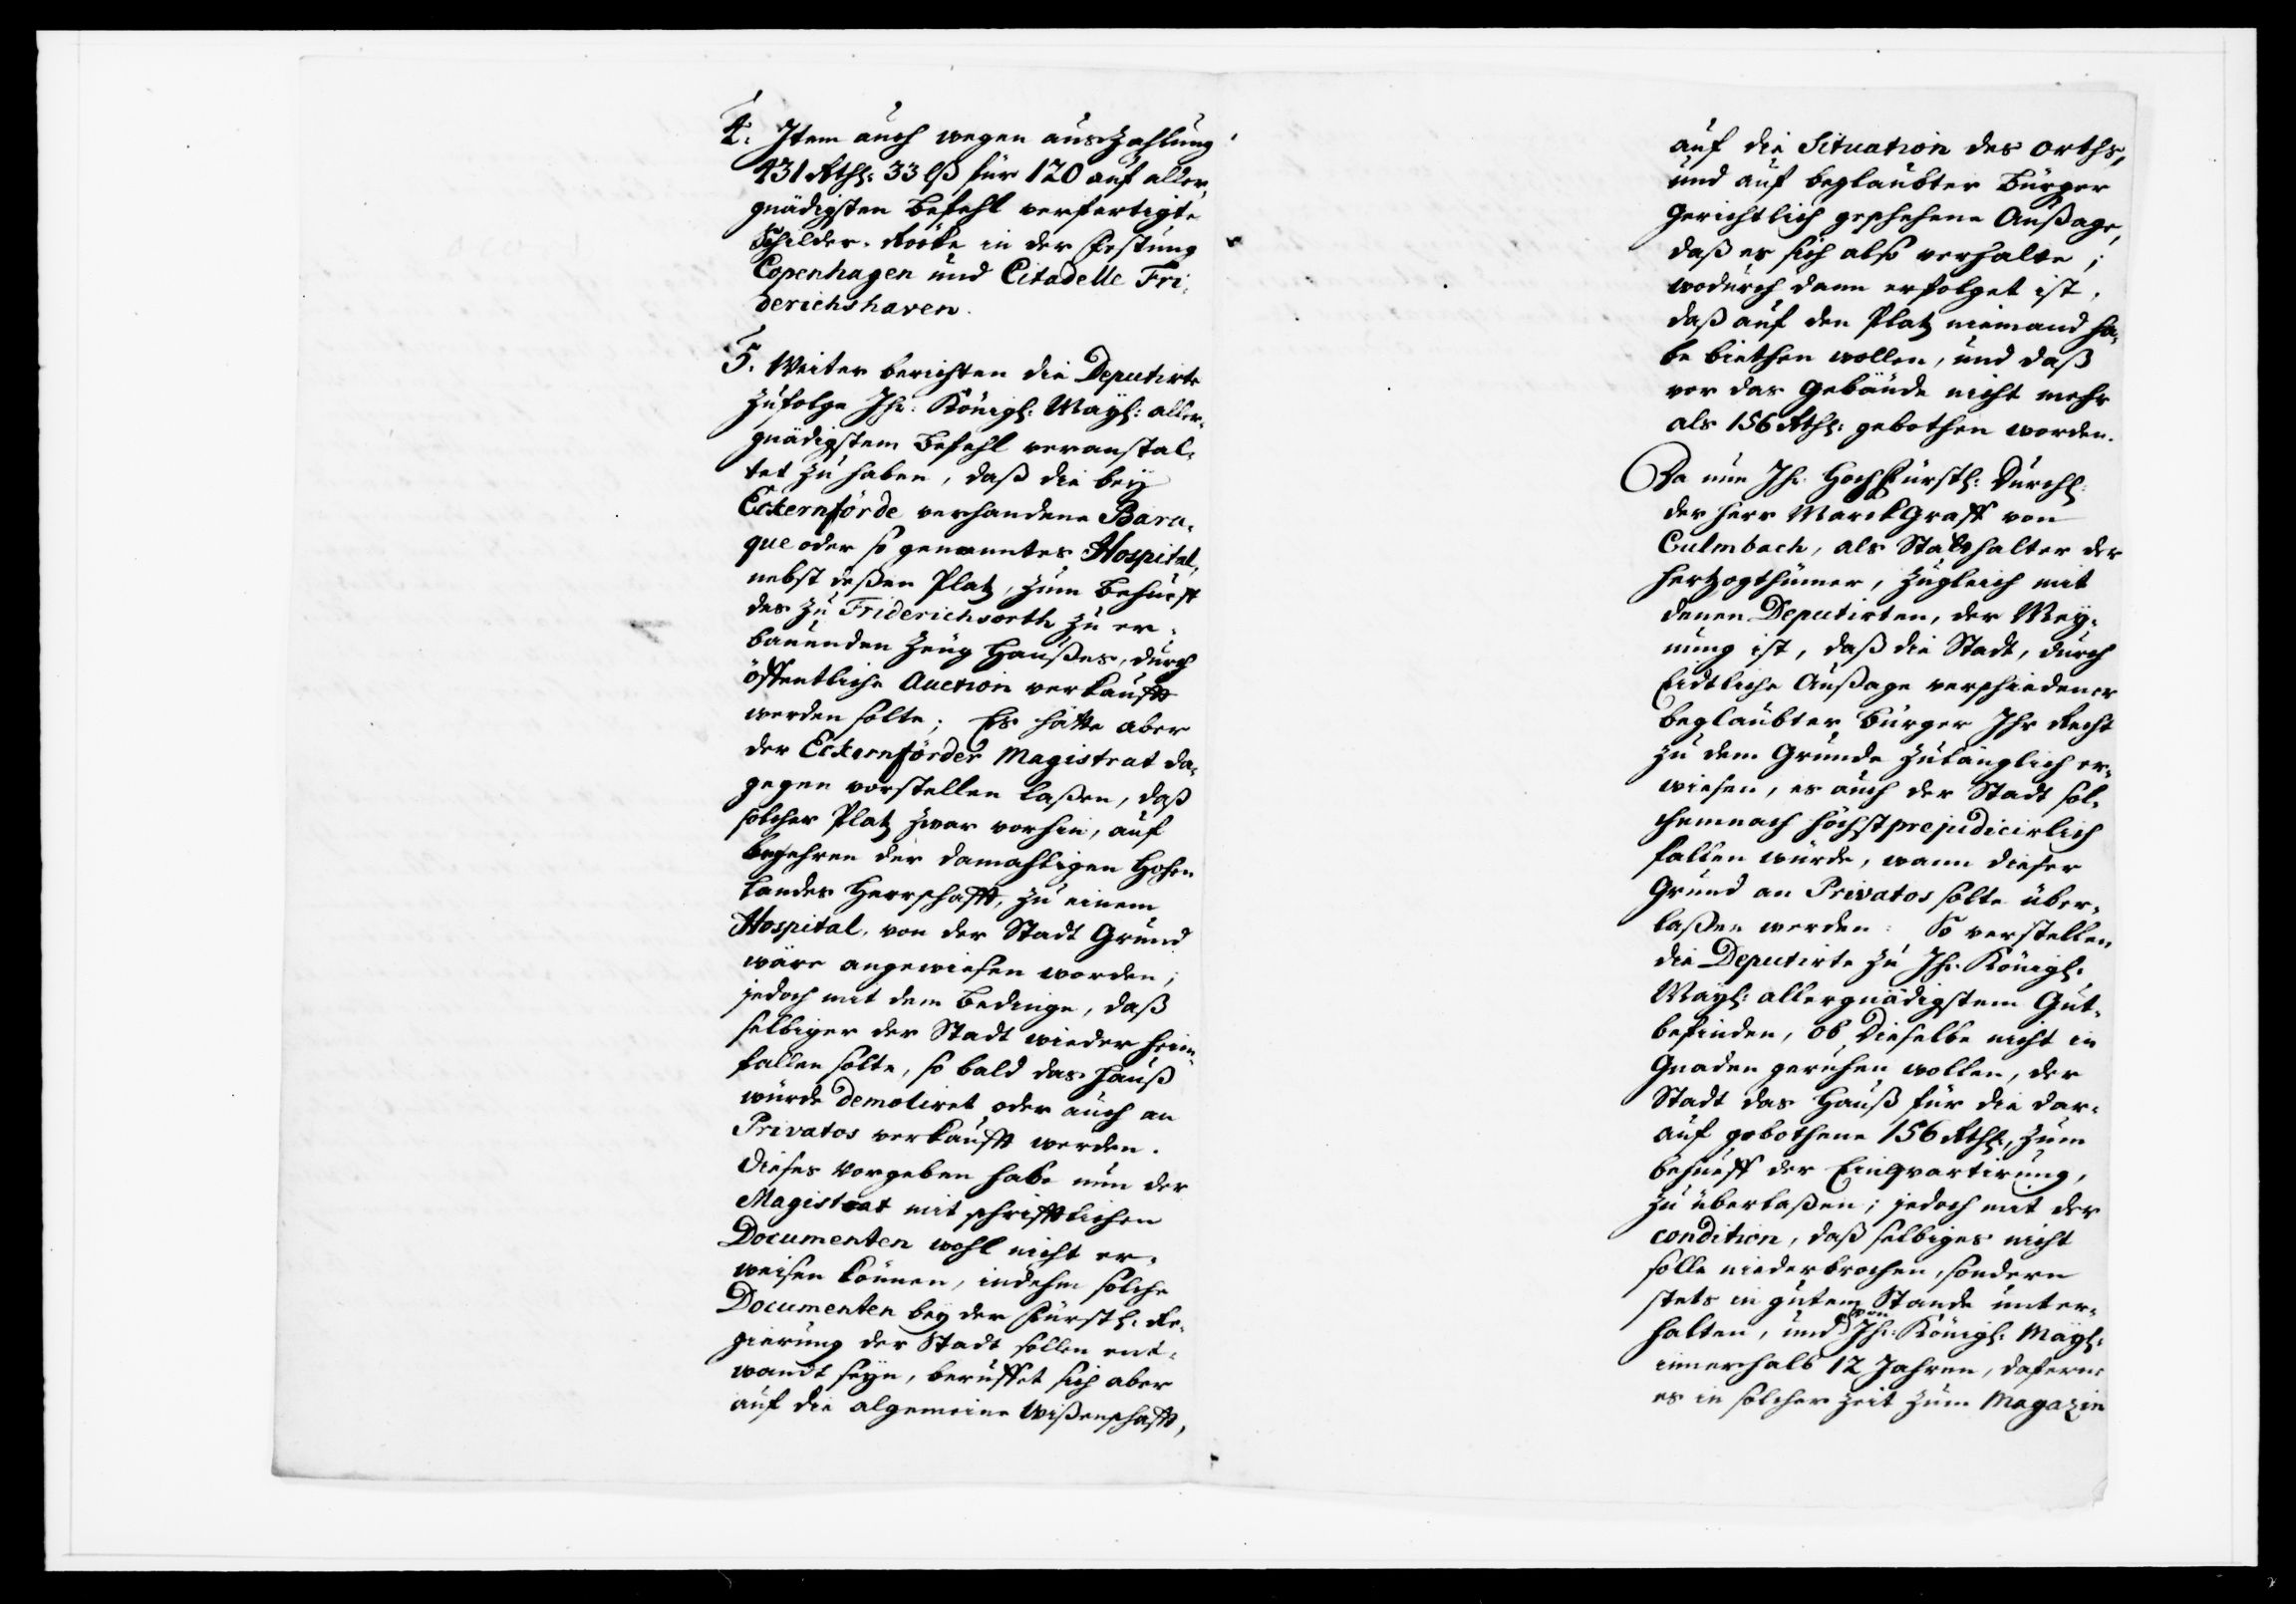 4. Item auch wegen auszahlung
431 Rthl: 33 lß für 120 auf aller„
gnädigsten Befehl verfertigte
Schilder-Röcke in der Festung
Copenhagen und Citadelle Fri„
derichshaven.
5. Weiter berichten die Deputirte
zufolge Ihr. Königl: Mayl: aller„
gnädigstem Befehl veranstal„
tet zu haben, daß die bey
Eckernförde verhandene Bara„
que oder so genanntes Hospital,
nebst deßen Platz, zum Behueff
des zu Friderichsorth zu er„
bauenden Zeug Haußes, durch
öffentliche Auction verkaufft
werden solte; Es hätte aber
der Eckernförder Magistrat da„
gegen vorstellen laßen, daß
solcher Platz zwar vorhin, auf
begehren der damahligen Hohen
Landes Herrschafft, zu einem
Hospital, von der Stadt Grund
wäre angewiesen worden;
jedoch mit dem Bedinge, daß
selbiger der Stadt wieder heim„
fallen solte, so bald das Hauß
würde demoliret oder auch an
Privatos verkaufft werden.
Dieses Vorgeben habe nun der
Magistrat mit schrifftlichen
Documenten wohl nicht er„
weisen können, indehm solche
Documenten bey der Fürstl. Re„
gierung der Stadt sollen ent„
wandt seyn, beruffet sich aber
auf die algemeine Wißenschafft,
auf die Situation des Orths,
und auf beglaubter Bürger
Gerichtlich geschehene Außage,
daß es sich also verhalte;
wodurch dann erfolget ist,
daß auf den Platz niemand ha„
be biethen wollen, und daß
vor das Gebäude nicht mehr
als 156 Rthl: gebothen worden.
Da nun Ihr. HochFürstl: Durchl:
der Herr MarckGraff von
Culmbach, als Stadthalter der
Hertzogthümer, zugleich mit
denen Deputirten, der Mey„
nung ist, daß die Stadt, durch
Eidtliche Außage verschiedener
beglaubter Bürger Ihr Recht
zu dem Grunde zulänglich er„
wiesen, es auch der Stadt sol„
chemnach höchst prejudicirlich
fallen würde, wann dieser
Grund an Privatos solte über„
laßen werden: So verstellen
die Deputirte zu Ihr. Königl:
Mayl: allergnädigstem Gut„
befinden, ob Dieselbe nicht in
Gnaden geruhen wollen, der
Stadt das Hauß für die dar„
auf gebothene 156 Rthl:, zum
behueff der Einqvartirung,
zu überlaßen; jedoch mit der
condition, daß selbiges nicht
solle niederbrochen, sondern
stets in gutem Stande unter„
halten, und von Ihr. Königl: Mayl:
innerhalb 12 Jahren, daferne
es in solcher Zeit zum Magazin